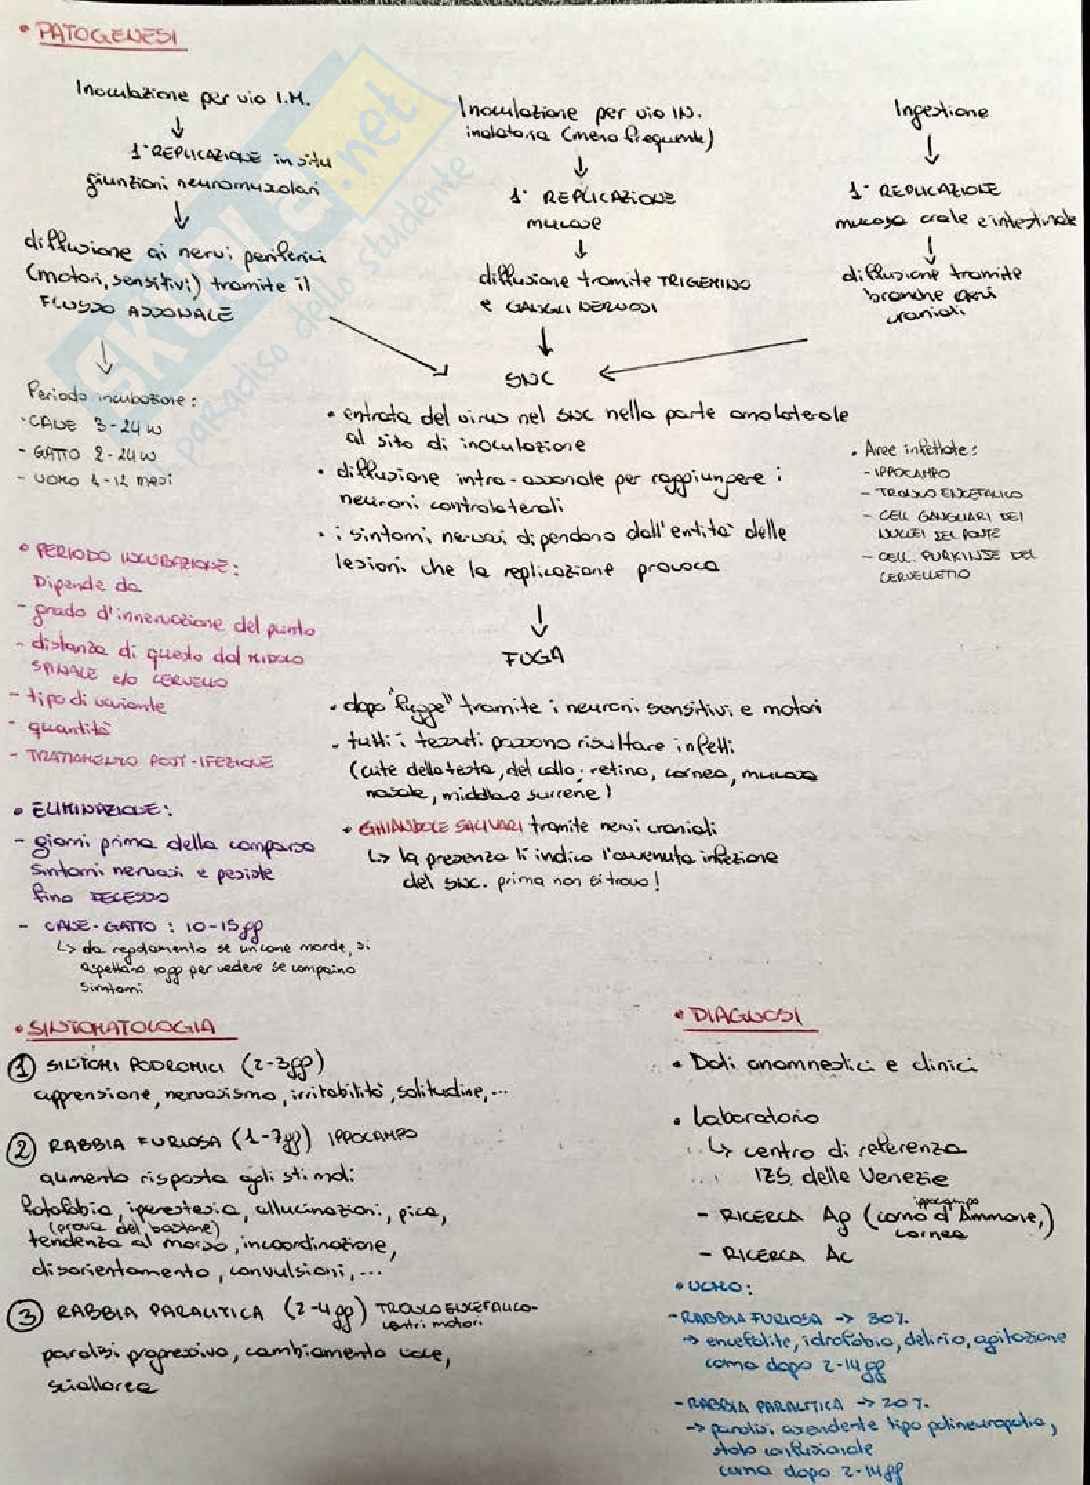 • PATOGENESI
Inoculazione per via I.M.
↓
1° REPLICAZIONE in situ
giunzioni neuromuscolari
↓
diffusione ai nervi periferici
(motori, sensitivi) tramite il
FLUSSO ASSONALE
↓
Periodo incubazione:
- CANE 3-24 w
- GATTO 2-24 w
- UOMO 1-12 mesi
Inoculazione per via IN.
inalatoria (meno frequente)
↓
1° REPLICAZIONE
mucose
↓
diffusione tramite TRIGEMINO
e GANGLI NERVOSI
↓
Ingestione
↓
1° REPLICAZIONE
mucosa orale e intestinale
↓
diffusione tramite
branche nervi
craniali
SNC
• entrata del virus nel SNC nella parte omolaterale
al sito di inoculazione
• diffusione intra-assonale per raggiungere i
neuroni controlaterali
• i sintomi nervosi dipendono dall'entità delle
lesioni che la replicazione provoca
• Aree infettate:
- IPPOCAMPO
- TRONCO ENCEFALICO
- CELL GANGLIARI DEI
NUCLEI DEL PONTE
- CELL. PURKINJE DEL
CERVELLETTO
↓
FUGA
• dopo "fugge" tramite i neuroni sensitivi e motori
- tutti i tessuti possono risultare infetti
(cute della testa, del collo, retina, cornea, mucosa
nasale, midollare surrene)
• GHIANDOLE SALIVARI tramite nervi craniali
↳ la presenza lì indica l'avvenuta infezione
del SNC. prima non si trova!
• PERIODO INCUBAZIONE:
Dipende da
- grado d'innervazione del punto
- distanza di questo dal MIDOLLO
SPINALE e/o CERVELLO
- tipo di variante
- quantità
- TRATTAMENTO POST-IFEZIONE
• ELIMINAZIONE:
- giorni prima della comparsa
sintomi nervosi e pesiste
fino DECESSO
- CANE-GATTO: 10-15gg
↳ da regolamento se un cane morde, si
aspettano 10gg per vedere se compaino
sintomi
• SINTOMATOLOGIA
1 SINTOMI PODROMICI (2-3gg)
apprensione, nervosismo, irritabilità, solitudine, ...
2 RABBIA FURIOSA (1-7gg) IPPOCAMPO
aumento risposta agli stimoli
fotofobia, iperestesia, allucinazioni, pica,
(prova del bastone)
tendenza al morso, incoordinazione,
disorientamento, convulsioni, ...
3 RABBIA PARALITICA (2-4gg) TRONCO ENCEFALICO-
centri motori
paralisi progressiva, cambiamento voce,
scialorrea
• DIAGNOSI
• Dati anamnestici e clinici
• Laboratorio
↳ centro di referenza
IZS delle Venezie
- RICERCA Ag (corno d'Ammone,)
ippocampo
cornea
- RICERCA AC
• UOMO:
- RABBIA FURIOSA -> 80%
-> encefalite, idrofobia, delirio, agitazione
coma dopo 2-14gg
- RABBIA PARALITICA -> 20%
-> paralisi ascendente tipo polineuropatia,
stato confusionale
coma dopo 2-14gg
skuola.net
il paradiso dello studente